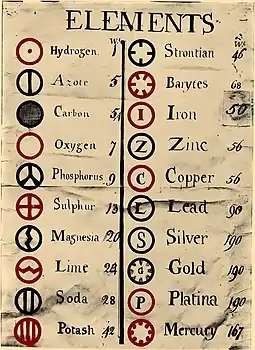 ELEMENTS
Hydrogen. 1
Azote 5
Carbon 5,4
Oxygen 7
Phosphorus 9
Sulphur 13
Magnesia 20
Lime 24
Soda 28
Potash 42
Strontian 46
Barytes 68
I Iron 50
Z Zinc 56
C Copper 56
L Lead 90
S Silver 190
G Gold 190
P Platina 190
Mercury 167